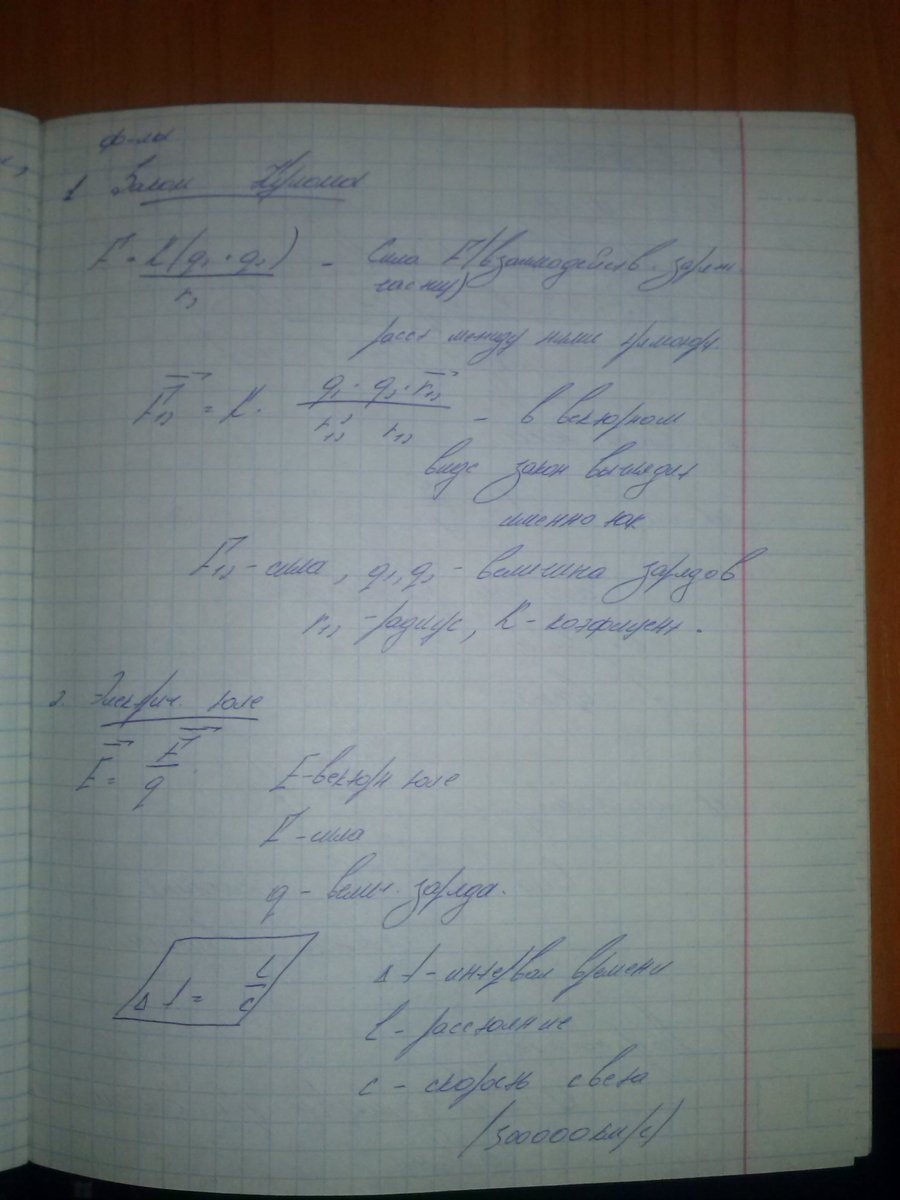 ф-лы
1 Закон Кулона
F = K(q1 · q2) - Сила F(взаимодейств. заряж.
r2 частиц)
расст между ними
F12 = K · q1 · q2 · r12 - в векторном
r12² r12
виде закон выглядит
именно так
F12 - сила, q1, q2 - величина зарядов
r12 - радиус, K - коэфицент.
2. Электрич. поле
E = F E - вектрн поле
q
F - сила
q - велич. заряда.
Δt = l Δt - интервал времени
c
l - расстояние
c - скорость света
(300000 км/с)